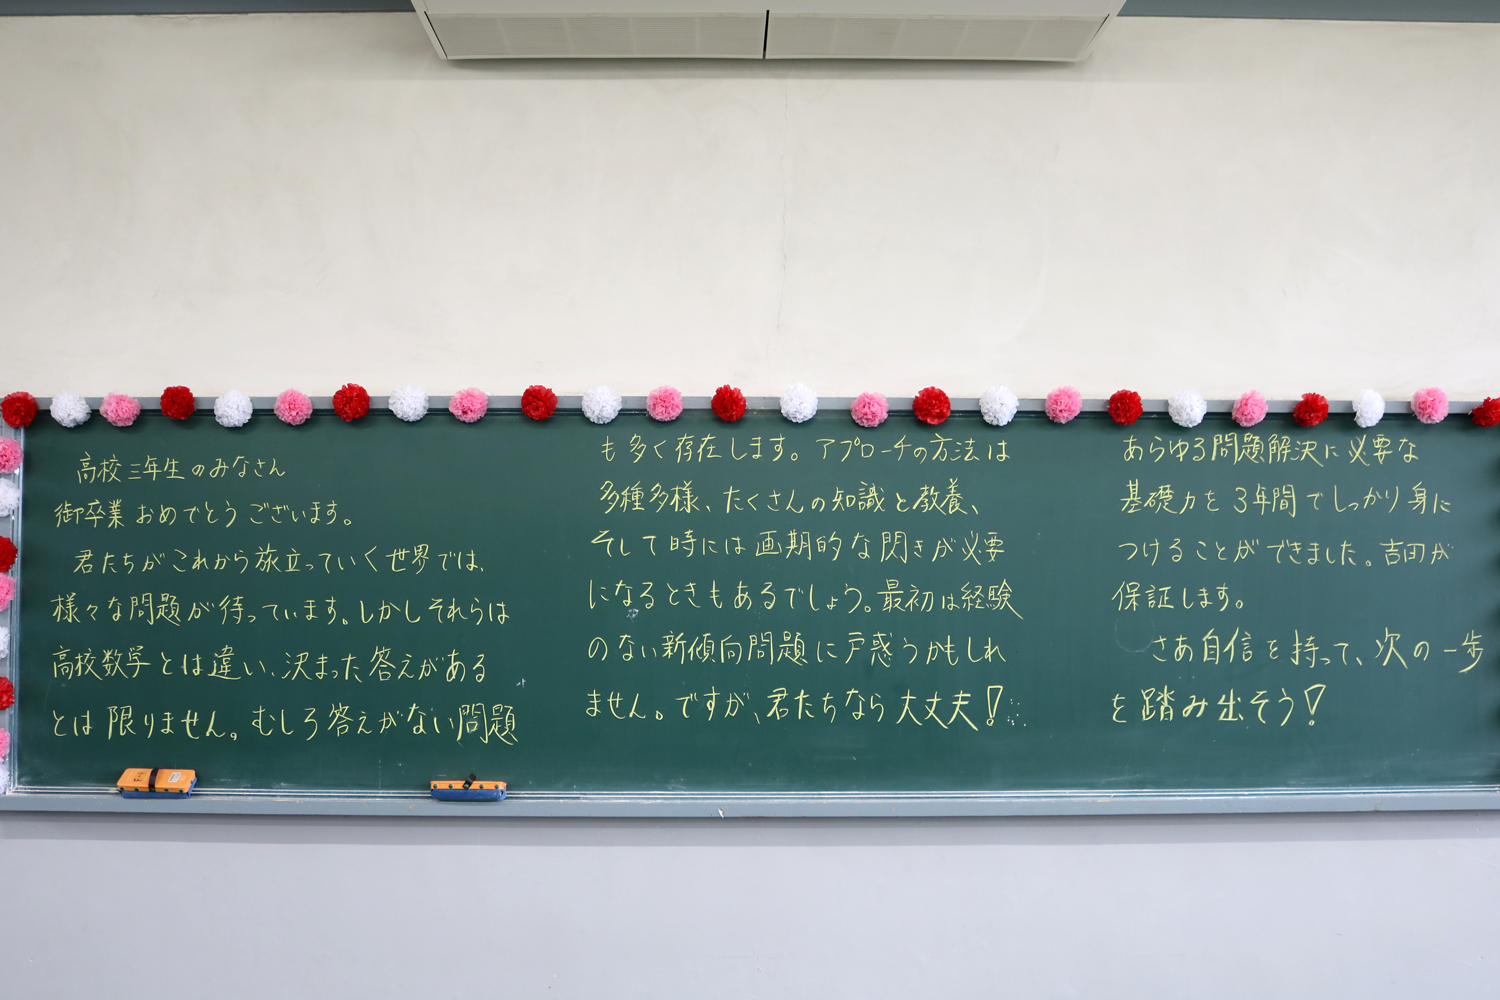 高校三年生のみなさん
御卒業おめでとうございます。
君たちがこれから旅立っていく世界では、
様々な問題が待っています。しかしそれらは
高校数学とは違い、決まった答えがある
とは限りません。むしろ答えがない問題
も多く存在します。アプローチの方法は
多種多様、たくさんの知識と教養、
そして時には画期的な閃きが必要
になるときもあるでしょう。最初は経験
のない新傾向問題に戸惑うかもしれ
ません。ですが、君たちなら大丈夫!
あらゆる問題解決に必要な
基礎力を3年間でしっかり身に
つけることができました。吉田が
保証します。
さあ自信を持って、次の一歩
を踏み出そう!